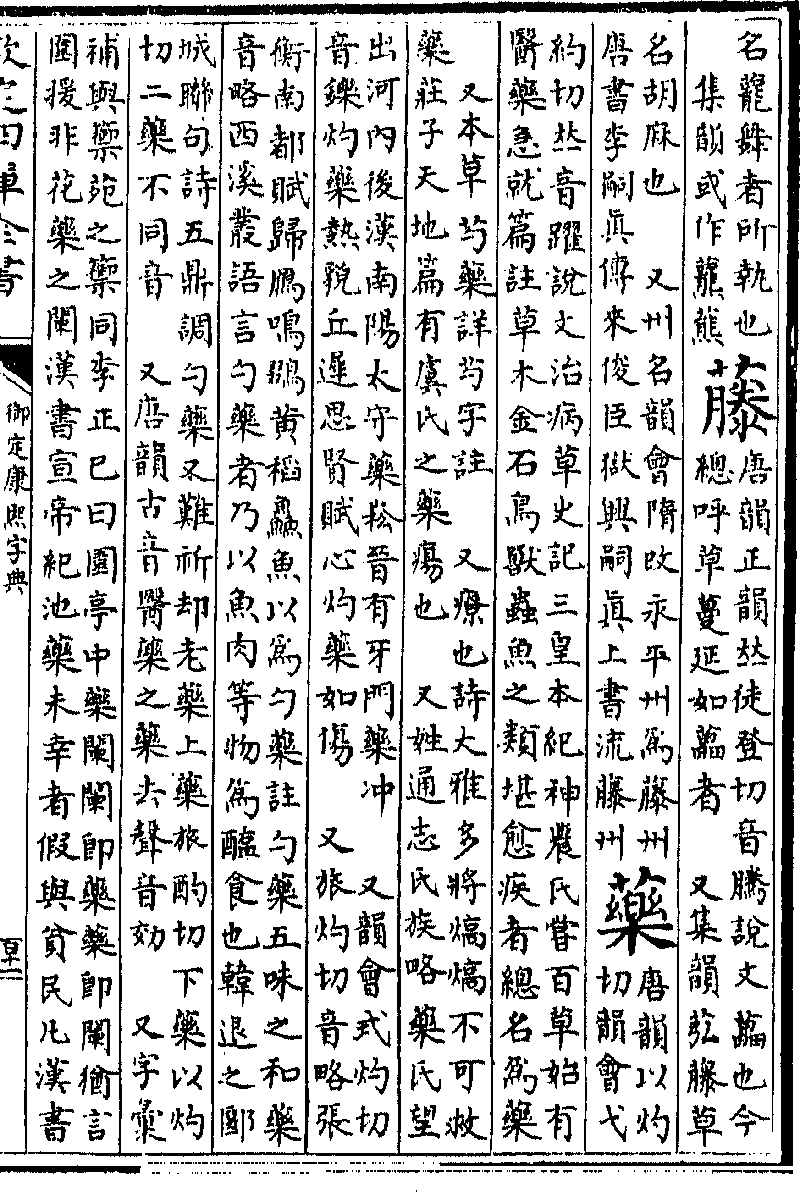 名龍舞者所執也
集韻或作
藤
唐韻正韻𠀤徒登切音騰說文藟也今
總呼草蔓延如藟者 又集韻苰藤草
名胡麻也 又州名韻會隋改永平州爲藤州
唐書李嗣眞傳來俊臣獄興嗣眞上書流藤州
藥
唐韻以灼
切韻會弋
約切𠀤音躍說文治病草史記三皇本紀神農氏嘗百草始有
醫藥急就篇註草木金石鳥獸蟲魚之類堪愈疾者總名爲藥
又本草芍藥詳芍字註 又療也詩大雅多將熇熇不可救
藥莊子天地篇有虞氏之藥瘍也 又姓通志氏族略藥氏望
出河內後漢南陽太守藥崧晉有牙門藥冲 又韻會式灼切
音鑠灼藥熱貌丘遲思賢賦心灼藥如傷 又旅灼切音略張
衡南都賦歸鴈鳴鵽黃稻鱻魚以爲勺藥註勺藥五味之和藥
音略西溪叢語言勺藥者乃以魚肉等物爲醢食也韓退之郾
城聯句詩五鼎調勺藥又難祈却老藥上藥旅酌切下藥以灼
切二藥不同音 又唐韻古音醫藥之藥去聲音効 又字彙
補與籞苑之籞同李正已曰園亭中藥闌闌卽藥藥卽闌猶言
圍援非花藥之闌漢書宣帝紀池藥未幸者假與貧民凡漢書
欽定四庫全書
御定康熙字典